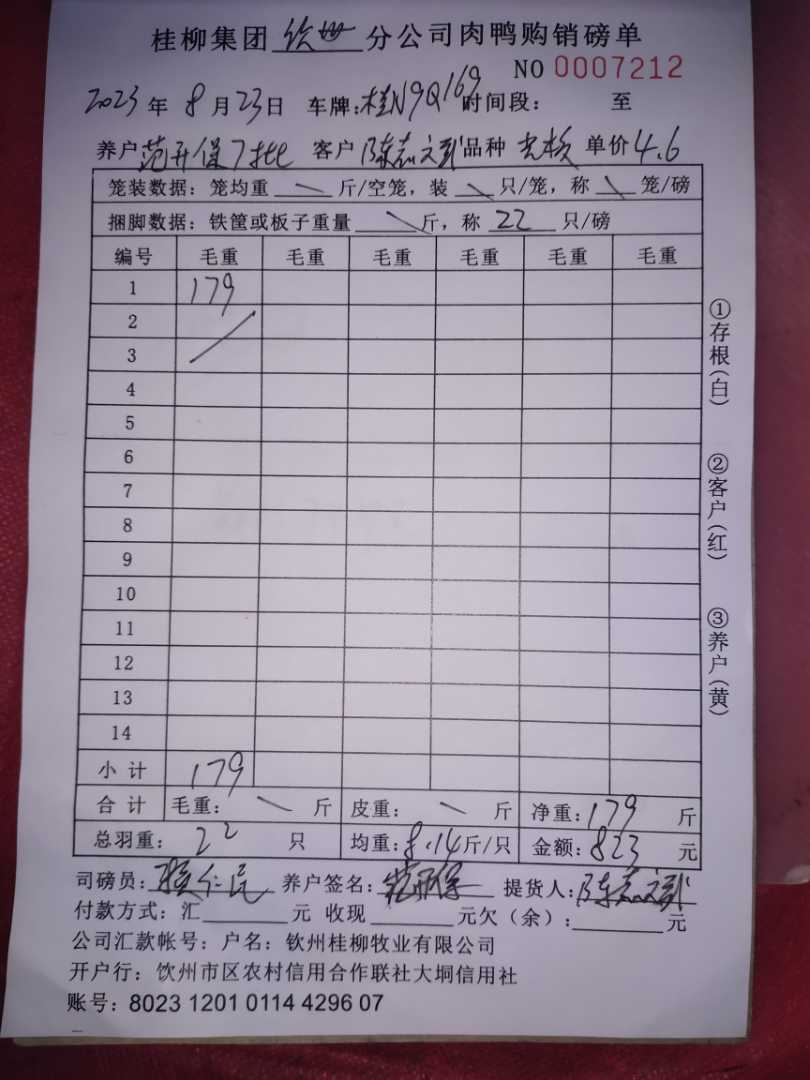 桂柳集团 钦州 分公司肉鸭购销磅单
NO 0007212
2023 年 8 月 23 日 车牌:桂N9Q169 时间段: 至
养户 范开保7批 客户 陈志文 品种 单价 4.6
笼装数据: 笼均重 斤/空笼, 装 只/笼, 称 笼/磅
捆脚数据: 铁筐或板子重量 斤, 称 22 只/磅
编号 毛重 毛重 毛重 毛重 毛重 毛重
1 179
2
3
4
5
6
7
8
9
10
11
12
13
14
小 计 179
合 计 毛重: 斤 皮重: 斤 净重: 179 斤
总羽重: 22 只 均重: 8.14 斤/只 金额: 823 元
司磅员: 养户签名: 范开保 提货人: 陈志文
付款方式: 汇 元 收现 元欠(余): 元
公司汇款帐号: 户名: 钦州桂柳牧业有限公司
开户行: 钦州市区农村信用合作联社大垌信用社
账号: 8023 1201 0114 4296 07
①存根(白)
②客户(红)
③养户(黄)